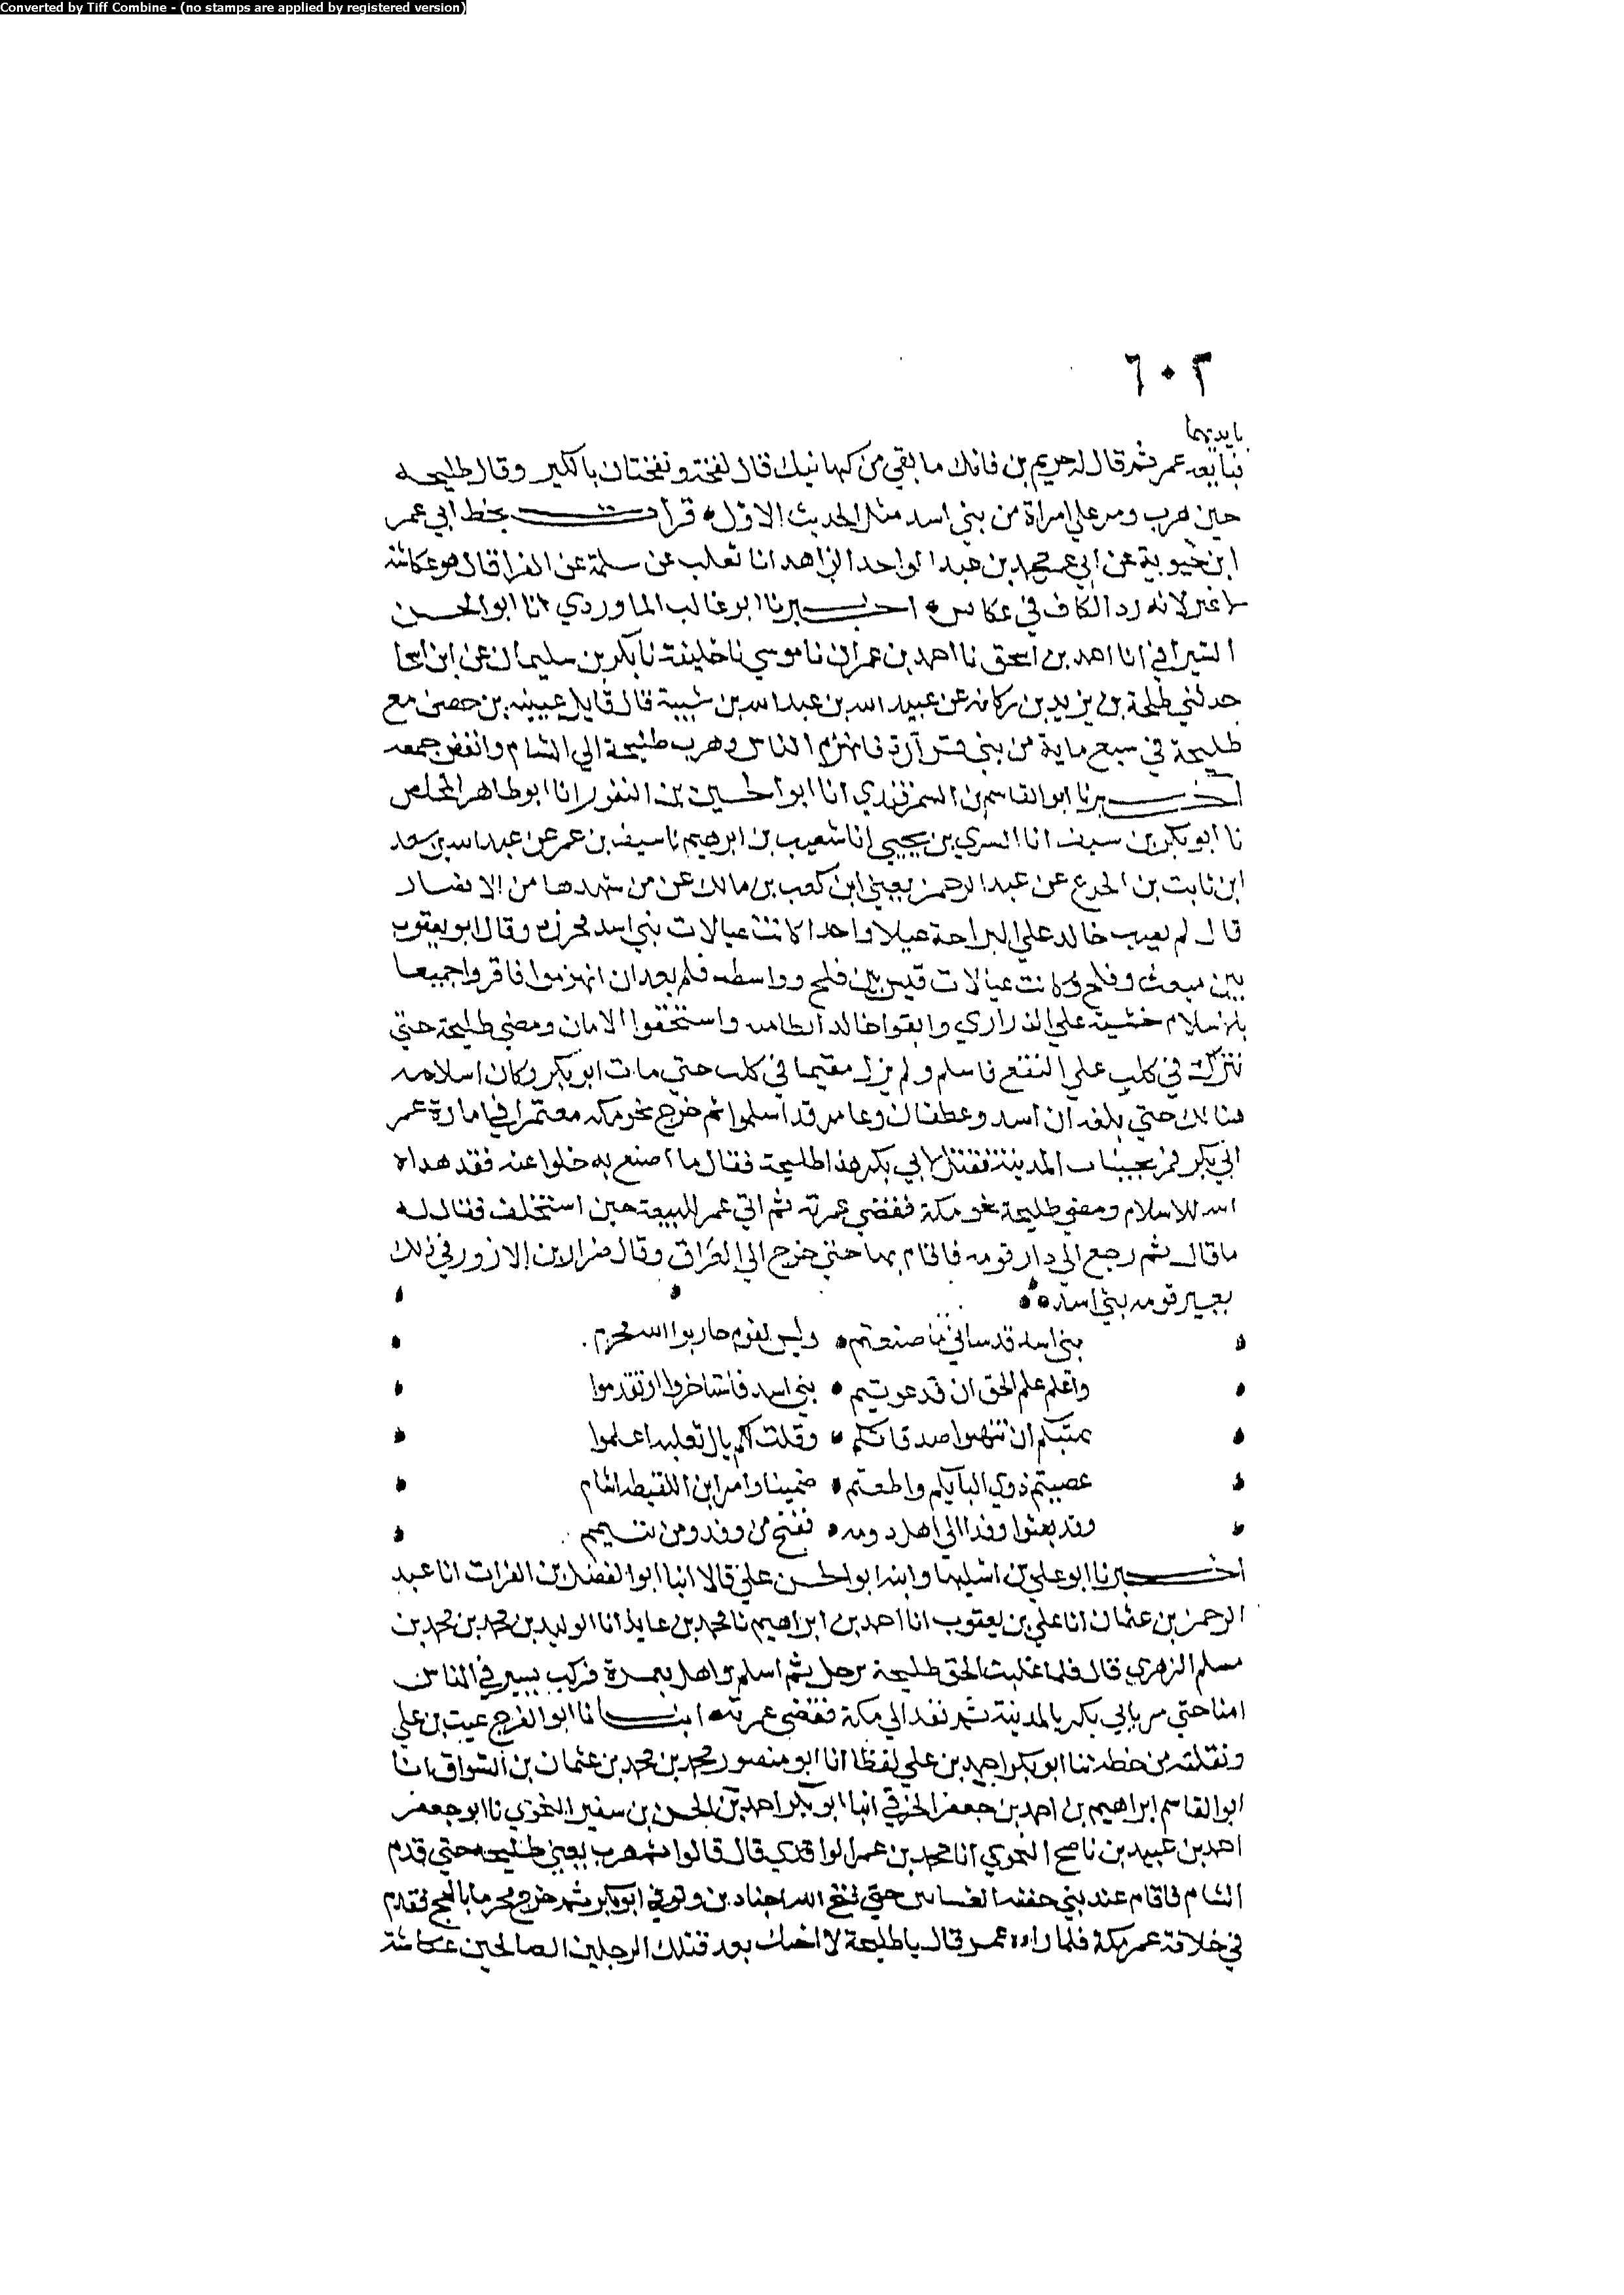 Converted by Tiff Combine - (no stamps are applied by registered version)
٦٠٢
بايديهما
فبايعه عمر ثم قال له حريم بن فاتك ما بقي من كهانتك قال نفخة ونفختان بالكير وقال طليحه
حين هرب ومر علي امراة من بني اسد مثل الحديث الاول قرات بخط ابي عمر
ابن حيوية عن ابي عمر محمد بن عبد الواحد الزاهد انا ثعلب عن سلمة عن الفرا قال هو عكاشه
لا غير لانه رد الكاف في عكاس اخبرنا ابو غالب الماوردي انا ابو الحسن
السيرافي انا احمد بن اسحق نا احمد بن عمران نا موسي نا خليفة نا بكر بن سليمان عن ابن اسحا
حدثني طلحة بن يزيد بن ركانه عن عبيد الله بن عبد الله بن شيبة قال قاتل عيينه بن حصن مع
طليحة في سبع ماية من بني فزارة فانهزم الناس وهرب طليحة الي الشام وانفض جمعه
اخبرنا ابو القاسم بن السمرقندي انا ابو الحسين بن النقور انا ابو طاهر المخلص
نا ابو بكر بن سيف انا السري بن يحيي انا شعيب بن ابرهيم نا سيف بن عمر عن عبد الله بن سعد
ابن ثابت بن الجدع عن عبد الرحمن يعني ابن كعب بن مالك عن من شهدها من الانصار
قال لم يصب خالد علي البزاحة عيلا واحدا كانت عيالات بني اسد محرزه وقال ابو يعقوب
بين مبعث وفلج وكانت عيالات قيس بين فلج وواسطه فلم يعد ان انهزموا فاقروا جميعا
بالاسلام خشية علي الذراري واتقوا خالد الطلبه واستحقوا الامان ومضي طليحة حتي
نزل في كلب علي النقع فاسلم ولم يزل مقيما في كلب حتي مات ابو بكر وكان اسلامه
هنالك حتي بلغه ان اسد وغطفان وعامر قد اسلموا ثم خرج نحو مكه معتمرا في امارة عمر
ابي بكر فمر بجنبات المدينة فقيل لابي بكر هذا طليحة فقال ما اصنع به خلوا عنه فقد هداه
الله للاسلام ومضي طليحة نحو مكة فقضي عمرته ثم اتي عمر للبيعة حين استخلف فقال له
ما قال ثم رجع الي دار قومه فاقام بها حتي خرج الي العراق وقال ضرار بن الازور في ذلك
يعير قومه بني اسد
بني اسد قد ساني ما صنعتم وليس لقوم حاربوا الله محرم
واعلم علم الحق ان قد عويتم بني اسد فاستاخروا او تقدموا
نهيتكم ان تنهبوا صدقاتكم وقلت لكم يال ثعلبه اعلموا
عصيتم ذوي البابكم واطعتم ضمينا وامر ابن اللقيطه اشام
وقد بعثوا وفدا الي اهل دومه فقبح من وفد ومن يتيمم
اخبرنا ابو علي بن اشليها وابنه ابو الحسن علي قالا انبا ابو الفضل بن الفرات انا عبد
الرحمن بن عثمان انا علي بن يعقوب انا احمد بن ابراهيم نا محمد بن عايذ انا الوليد بن محمد بن محمد بن
مسلم الزهري قال فلما غلبت الحق طليحة ترجل ثم اسلم واهل بعمرة فركب يسير في الناس
امنا حتي مر بابي بكر بالمدينة ثم نفذ الي مكة فقضي عمرته انبانا ابو الفرج غيث بن علي
ونقلته من خطه ثنا ابو بكر احمد بن علي لفظا انا ابو منصور محمد بن محمد بن عثمان بن السواق انا
ابو القاسم ابراهيم بن احمد بن جعفر الخرقي انبا ابو بكر احمد بن الحسن بن سفير النحوي نا ابو جعفر
احمد بن عبيد بن ناصح النحوي انا محمد بن عمر الواقدي قال قالوا ثم هرب يعني طليحه حتي قدم
الشام فاقام عند بني جفنه الغسانين حتي فتح الله اجنادين وتوفي ابو بكر ثم خرج محرما بالحج فقدم
في خلافة عمر مكة فلما راه عمر قال يا طليحة لا احبك بعد قتلك الرجلين الصالحين عكاشة